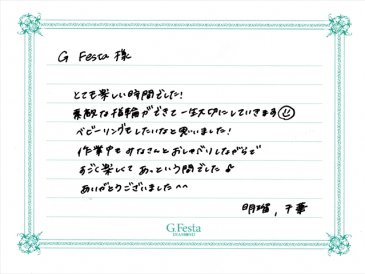 G Festa 様
とても楽しい時間でした！
素敵な指輪ができて一生大切にしていきます
ベビーリングもしたいなと思いました！
作業中もみなさんとおしゃべりしながらで
すごく楽しくてあっという間でした♪
ありがとうございました^^
明瑠、千華
G.Festa